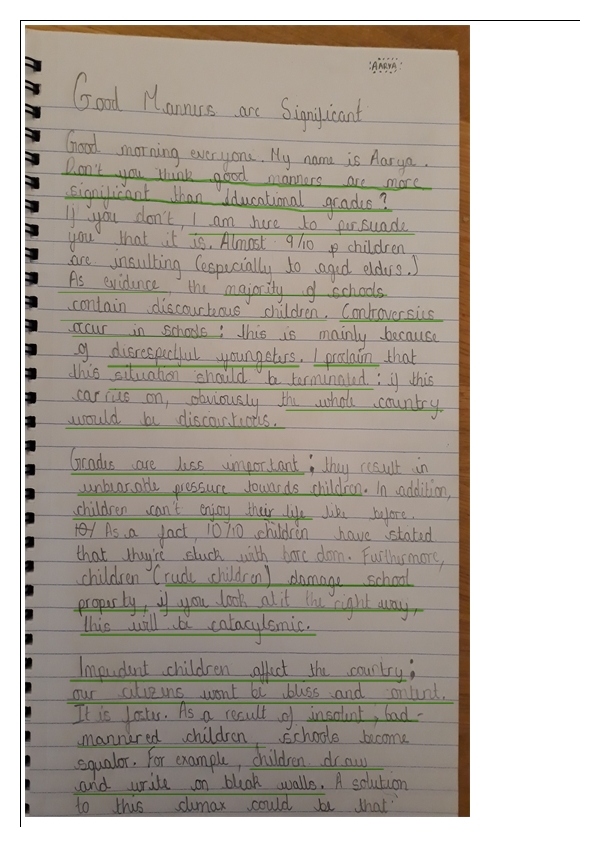 :AARYA:
Good Manners are Significant
Good morning everyone. My name is Aarya.
Don't you think good manners are more
significant than educational grades?
If you don't, I am here to persuade
you that it is. Almost 9/10 children
are insulting (especially to aged elders.)
As evidence, the majority of schools
contain discourteous children. Controversies
occur in schools: this is mainly because
of disrespectful youngsters. I proclaim that
this situation should be terminated: if this
carries on, obviously the whole country
would be discourteous.
Grades are less important; they result in
unbearable pressure towards children. In addition,
children can't enjoy their life like before.
As a fact, 10/10 children have stated
that they're stuck with boredom. Furthermore,
children (rude children) damage school
property, if you look at it the right way,
this will be catacylsmic.
Impudent children affect the country;
our citizens wont be bliss and content.
It is foster. As a result of insolent, bad-
mannered children, schools become
squalor. For example, children draw
and write on bleak walls. A solution
to this climax could be that: